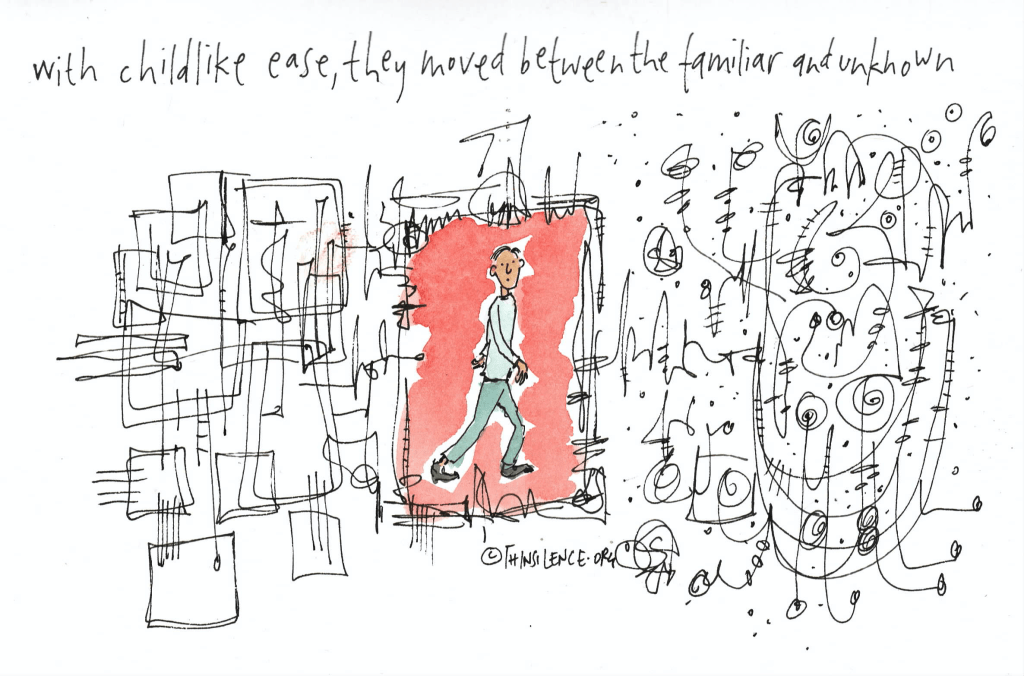 with childlike ease, they moved between the familiar and unknown
© THINSILENCE.ORG